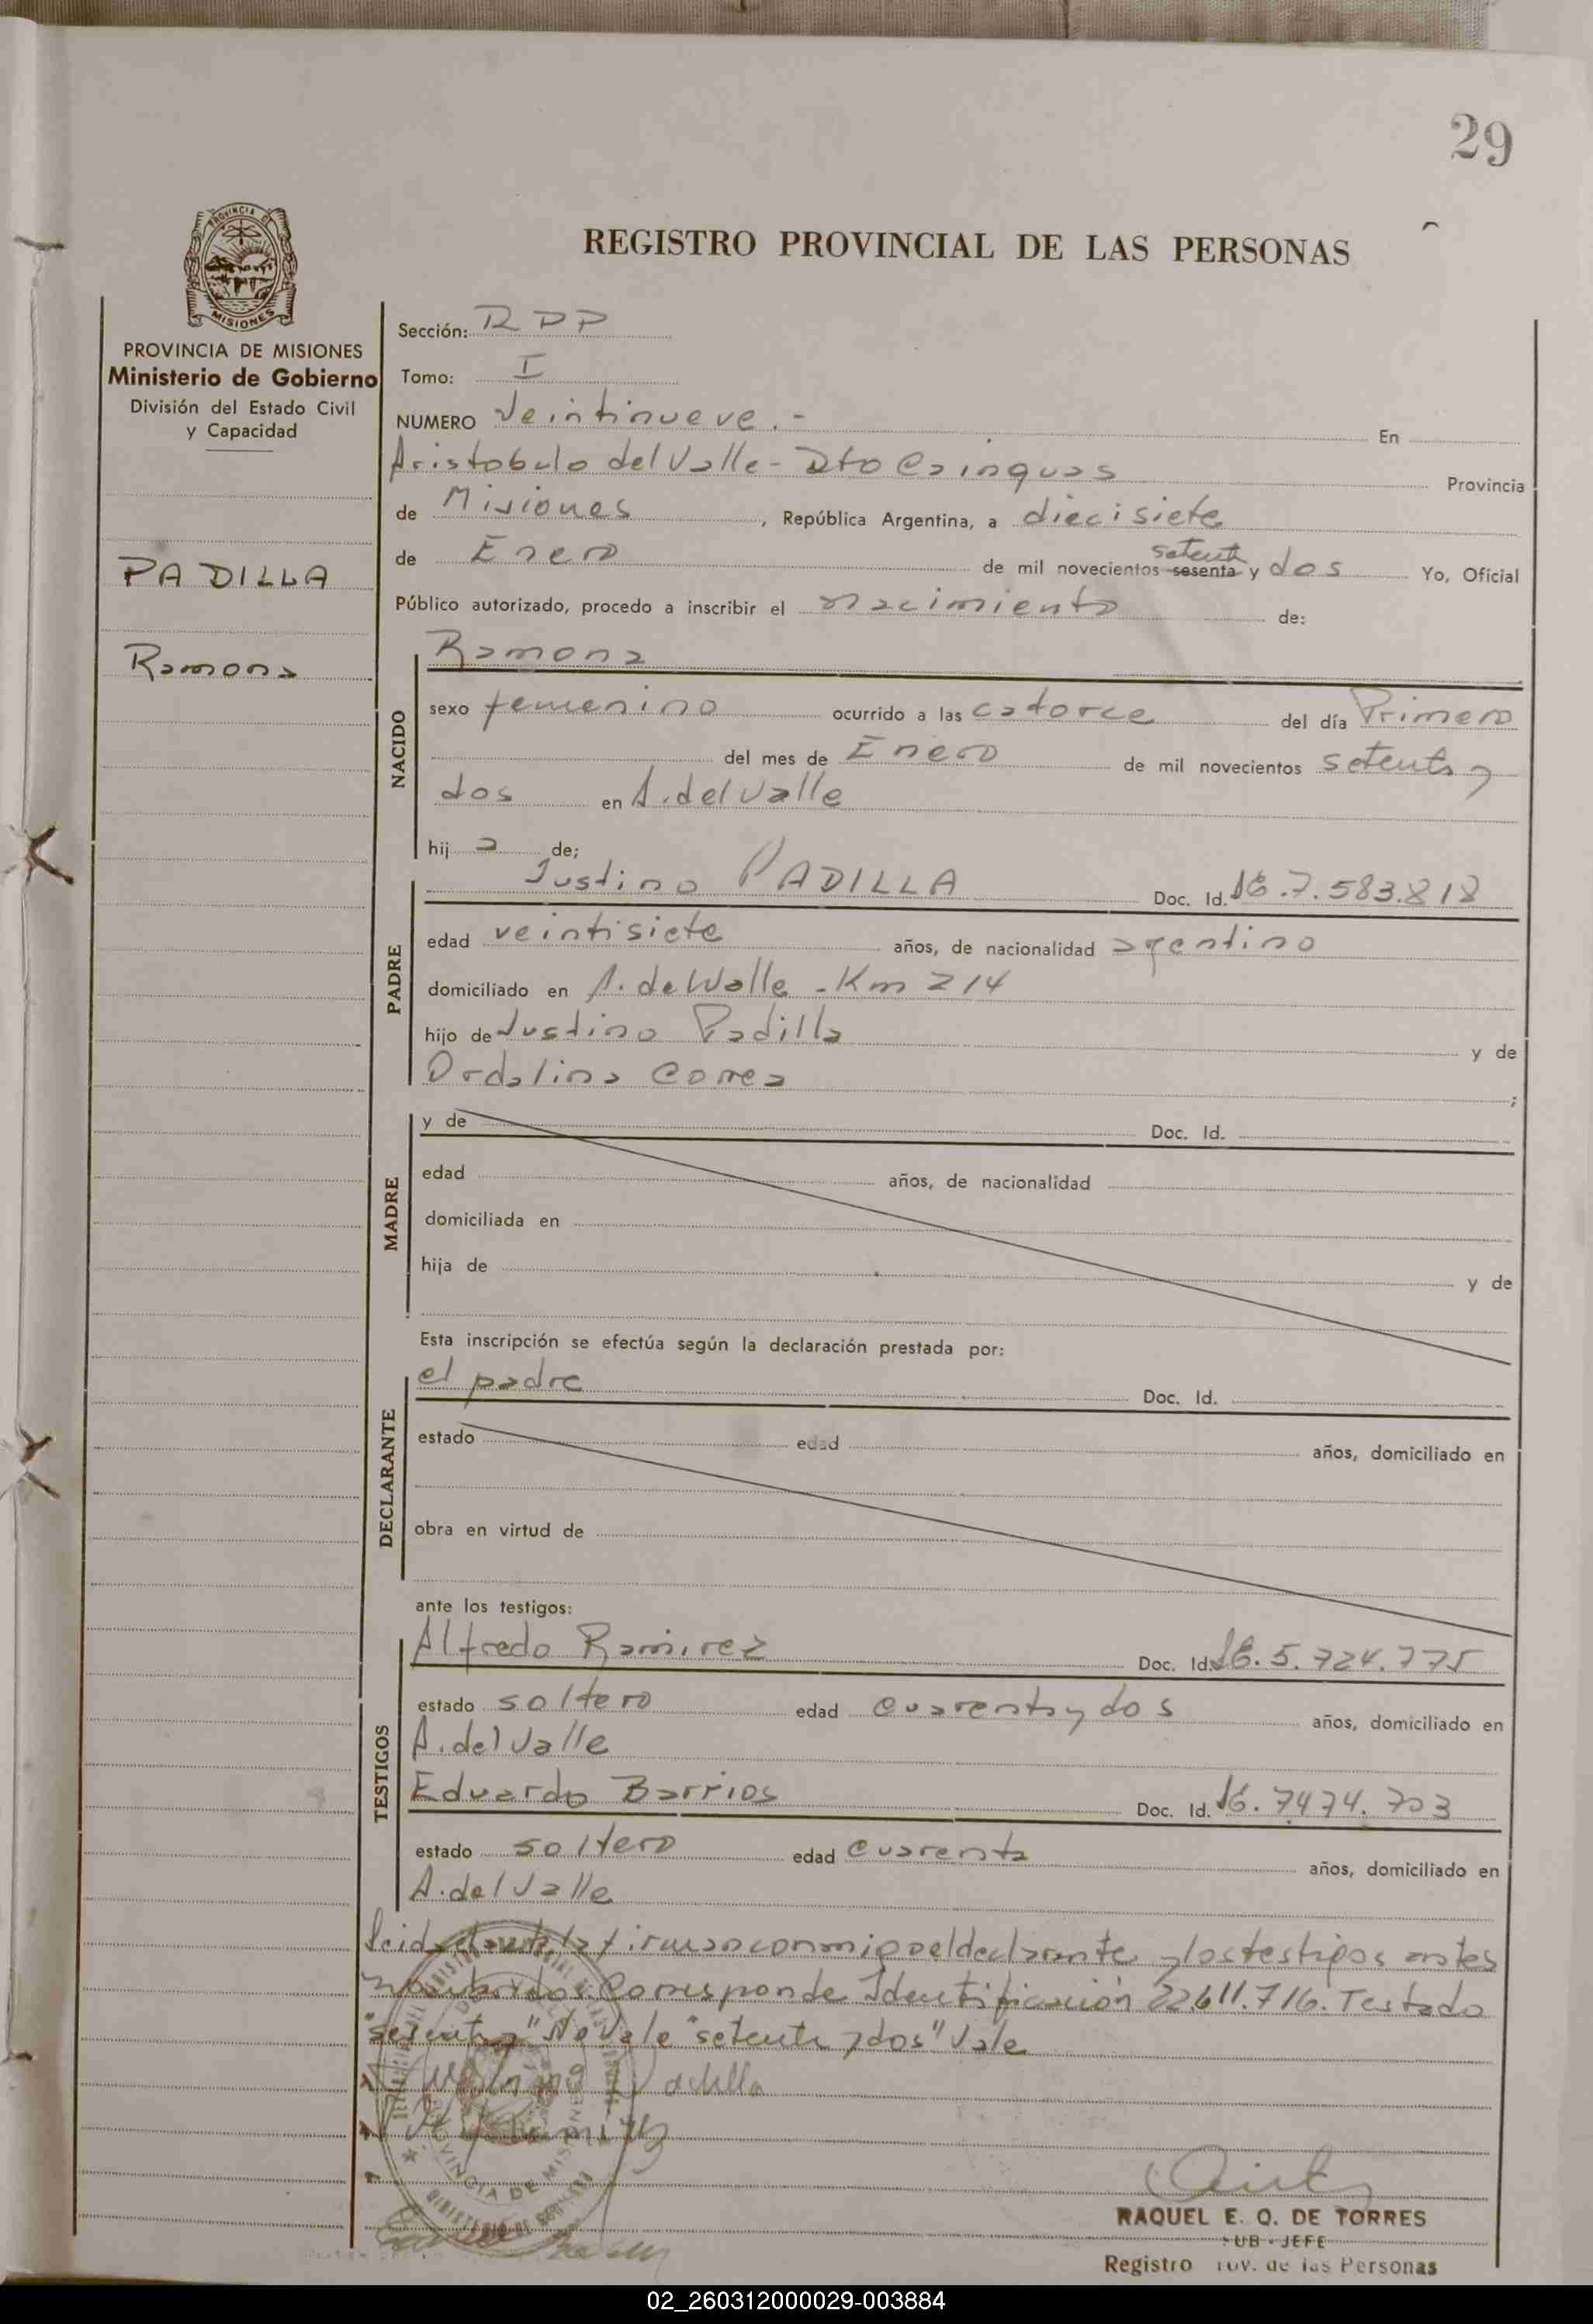 29
REGISTRO PROVINCIAL DE LAS PERSONAS
PROVINCIA DE MISIONES
Ministerio de Gobierno
División del Estado Civil
y Capacidad
PADILLA
Ramona
Sección: RDP
Tomo: I
NUMERO Veintinueve.- En
Aristobulo del Valle - Dto Cainguas Provincia
de Misiones, República Argentina, a diecisiete
de Enero de mil novecientos sesenta setenta y dos Yo, Oficial
Público autorizado, procedo a inscribir el nacimiento de:
NACIDO
Ramona
sexo femenino ocurrido a las catorce del día Primero
del mes de Enero de mil novecientos setenta y
dos en A. del Valle
hija de;
PADRE
Justino PADILLA Doc. Id. 7.583.818
edad veintisiete años, de nacionalidad agentino
domiciliado en A. del Valle - Km 214
hijo de Justino Padilla y de
Ordalina Correa ;
MADRE
y de Doc. Id.
edad años, de nacionalidad
domiciliada en
hija de y de
Esta inscripción se efectúa según la declaración prestada por:
DECLARANTE
el padre Doc. Id.
estado edad años, domiciliado en
obra en virtud de
ante los testigos:
TESTIGOS
Alfredo Ramirez Doc. Id. 5.724.775
estado soltero edad cuarenta y dos años, domiciliado en
A. del Valle
Eduardo Barrios Doc. Id. 7474.703
estado soltero edad cuarenta años, domiciliado en
A. del Valle
leida el acta, la firman conmigo el declarante y los testigos antes
nombrados. Corresponde Identificación 22.611.716. Testado
"sesenta y" No vale "setenta y dos" Vale
Padilla
RAQUEL E. O. DE TORRES
SUB - JEFE
Registro Prov. de las Personas
02_260312000029-003884